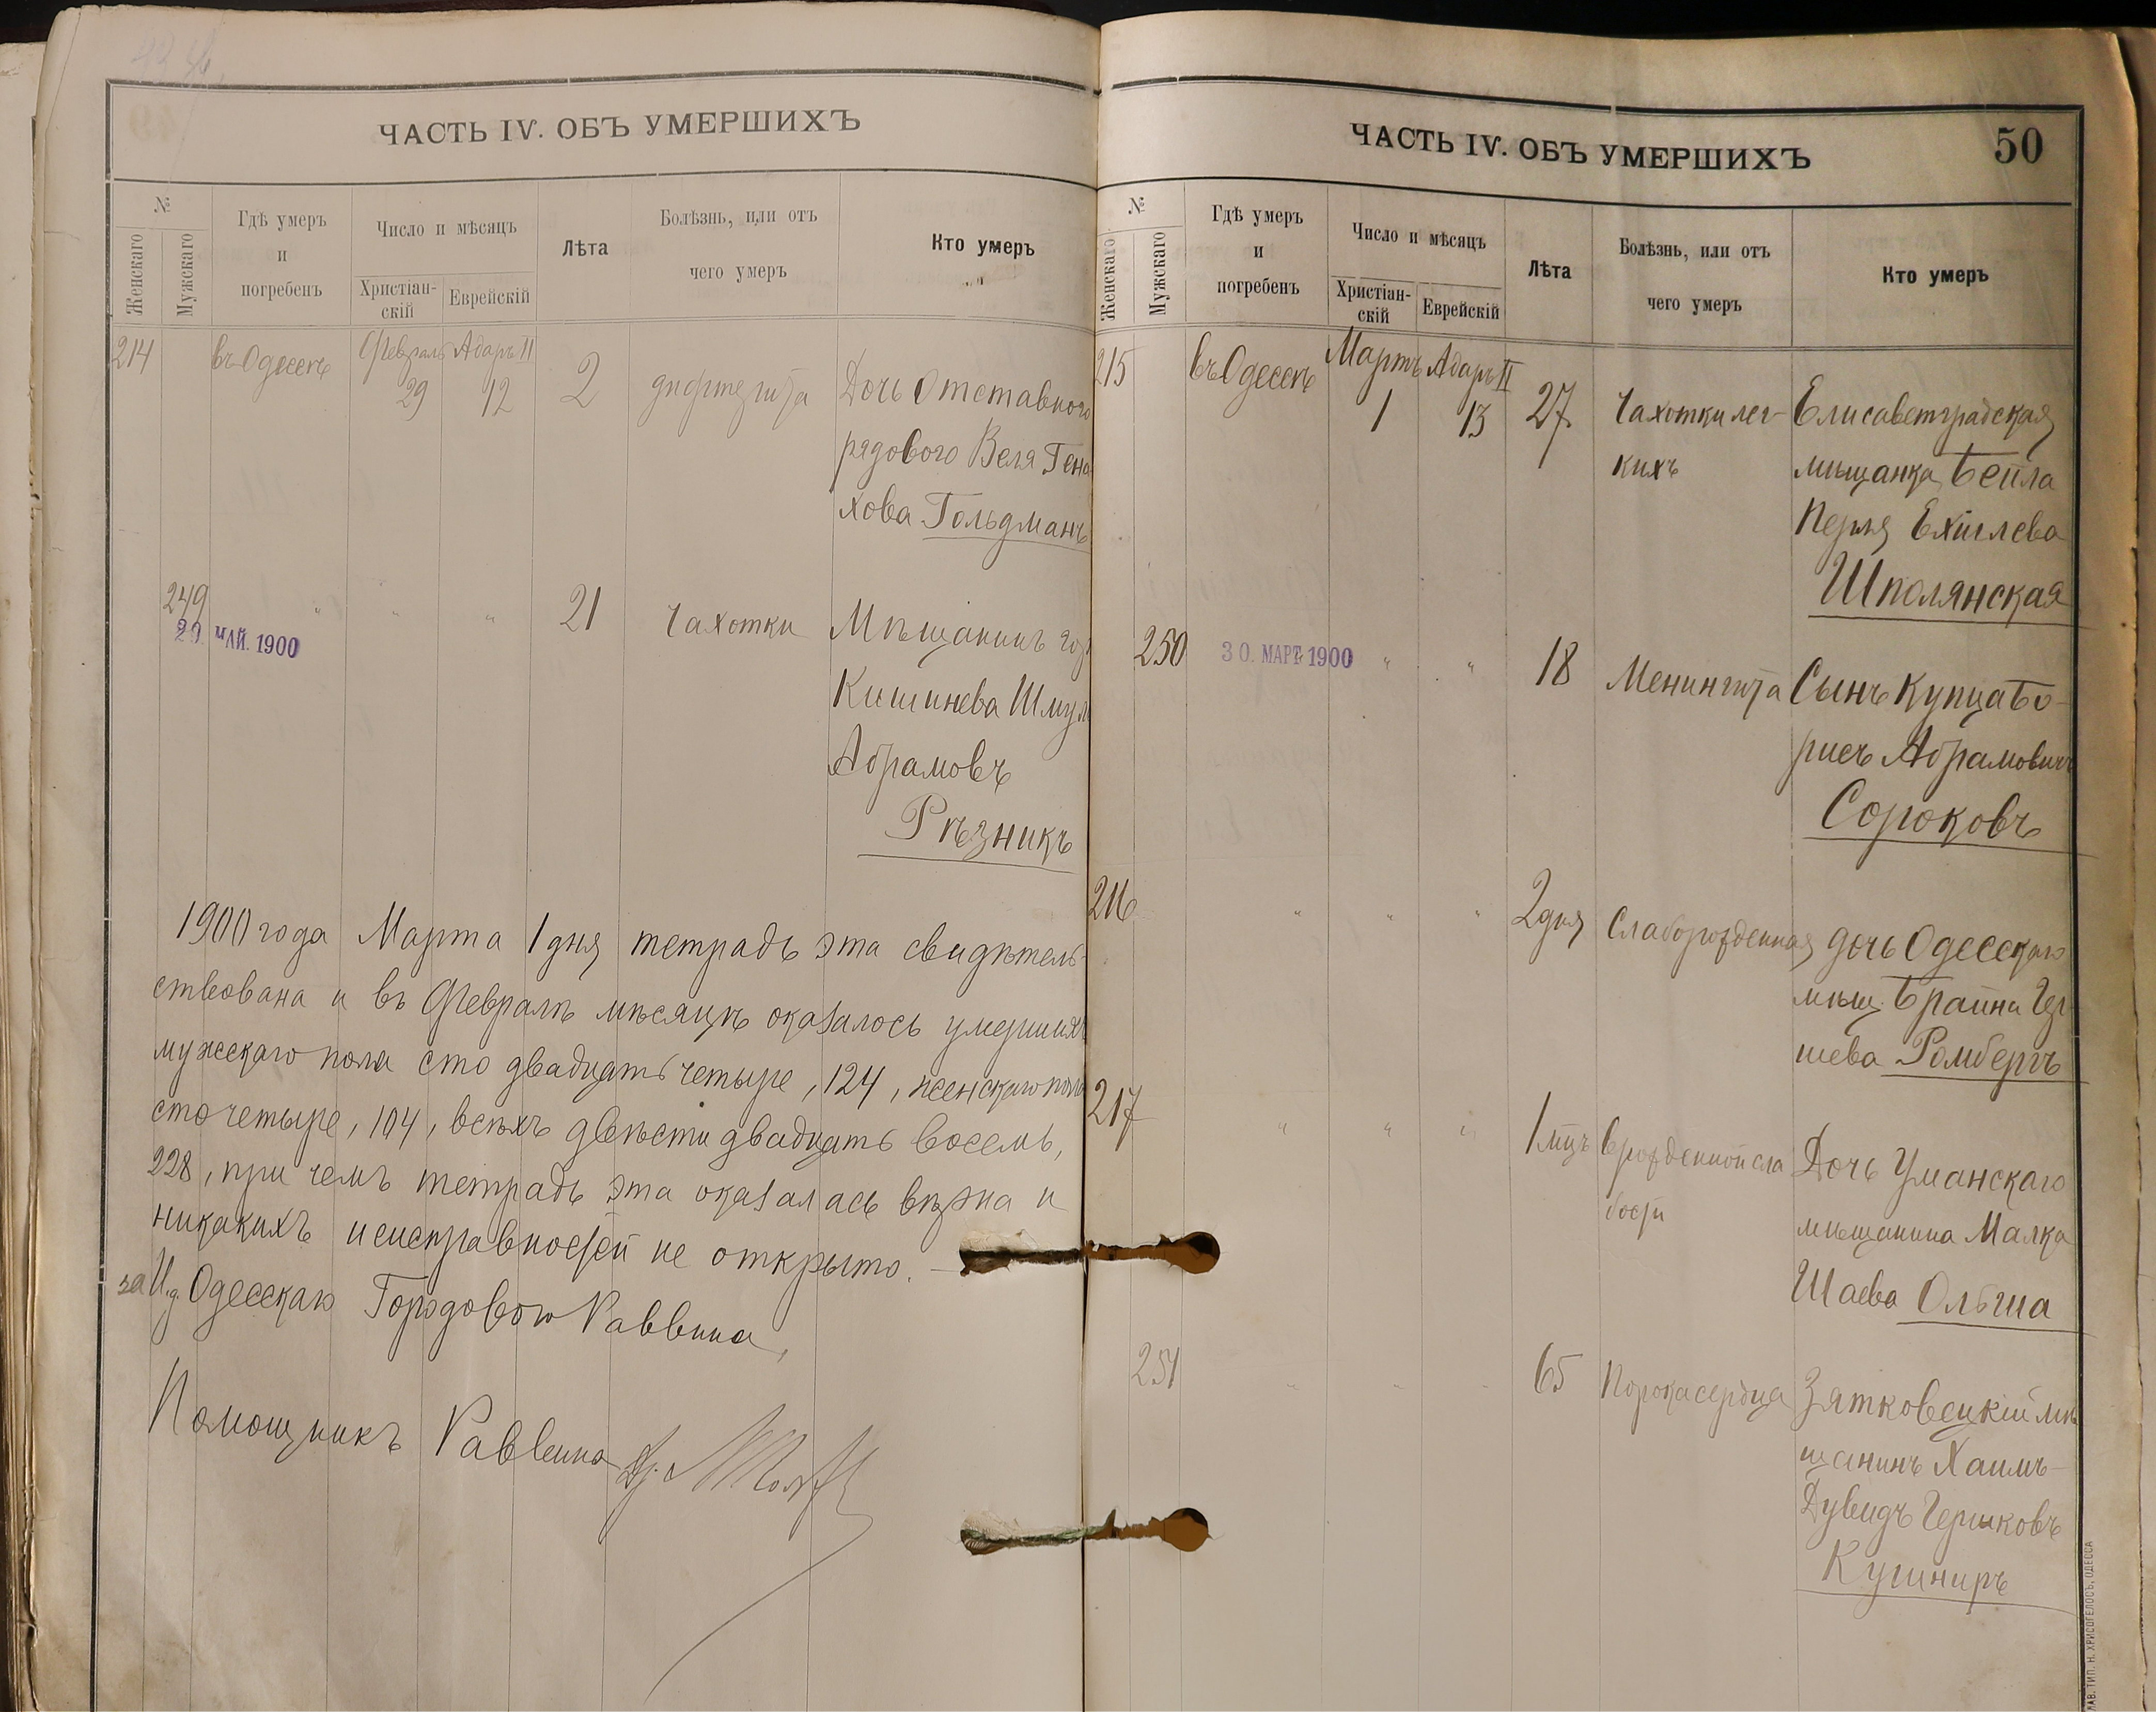 ЧАСТЬ IV. ОБЪ УМЕРШИХЪ
№
Женскаго
Мужскаго
Гдѣ умеръ
и
погребенъ
Число и мѣсяцъ
Христіан-
скій
Еврейскій
Лѣта
Болѣзнь, или отъ
чего умеръ
Кто умеръ
214
въ Одессѣ
Февраль
29
Адаръ II
12
2
дифтерита
Дочь отставного
рядового Веля Гена
хова Гольдманъ
249
29. МАЙ. 1900
"
"
"
21
Чахотки
Мѣщанинъ гор
Кишинева Шмул
Абрамовъ
Рѣзникъ
1900 года Марта 1 дня тетрадь эта свидѣтель-
ствована и въ Февралѣ мѣсяцѣ оказалось умершихъ
мужескаго пола сто двадцать четыре, 124, женскаго пола
сто четыре, 104, всѣхъ двѣсти двадцать восемь,
228, при чемъ тетрадь эта оказалась вѣрна и
никакихъ неисправностей не открыто. —
за И.д. Одесскаго Городового Раввина,
Помощникъ Раввина
ЧАСТЬ IV. ОБЪ УМЕРШИХЪ
50
№
Женскаго
Мужскаго
Гдѣ умеръ
и
погребенъ
Число и мѣсяцъ
Христіан-
скій
Еврейскій
Лѣта
Болѣзнь, или отъ
чего умеръ
Кто умеръ
215
въ Одессѣ
Мартъ
1
Адаръ II
13
27
Чахотки лег-
кихъ
Елисаветградская
мѣщанка Бейла
Перля Ехіилева
Шполянская
250
30. МАРТ. 1900
"
"
18
Менингита
Сынъ купца Бо-
рисъ Абрамовичъ
Сороковъ
216
"
"
"
2 дня
Слаборожденная
дочь Одесскаго
мѣщ. Брайна Гер-
шева Ромбергъ
217
"
"
"
1 мцъ
врожденной сла
бости
Дочь Уманскаго
мѣщанина Малка
Шаева Ольша
251
"
"
"
65
Порока сердца
Зятковецкій мѣ
щанинъ Хаимъ-
Дувидъ Гершковъ
Кушниръ
ЛАВ. ТИП. Н. ХРИСОГЕЛОСЪ, ОДЕССА